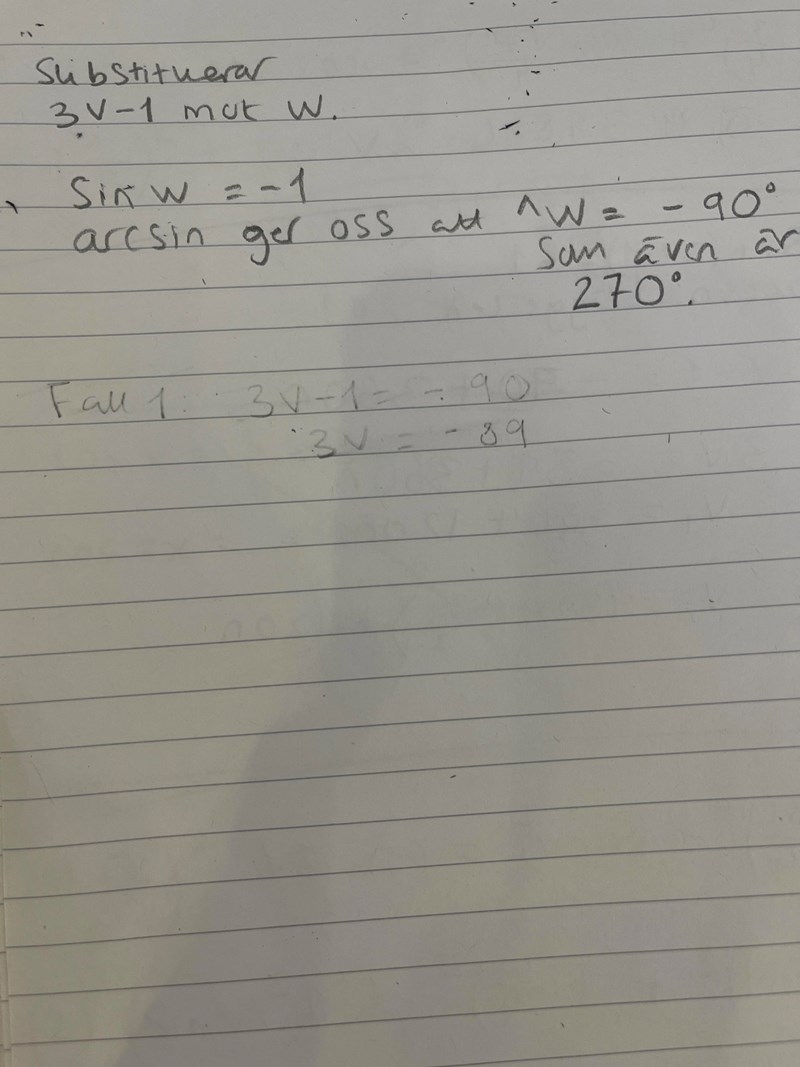 Substituerar
3V-1 mot W.
Sin W = -1
arcsin ger oss att ^W = -90°
Som även är
270°.
Fall 1: 3V-1 = -90
3V = -89